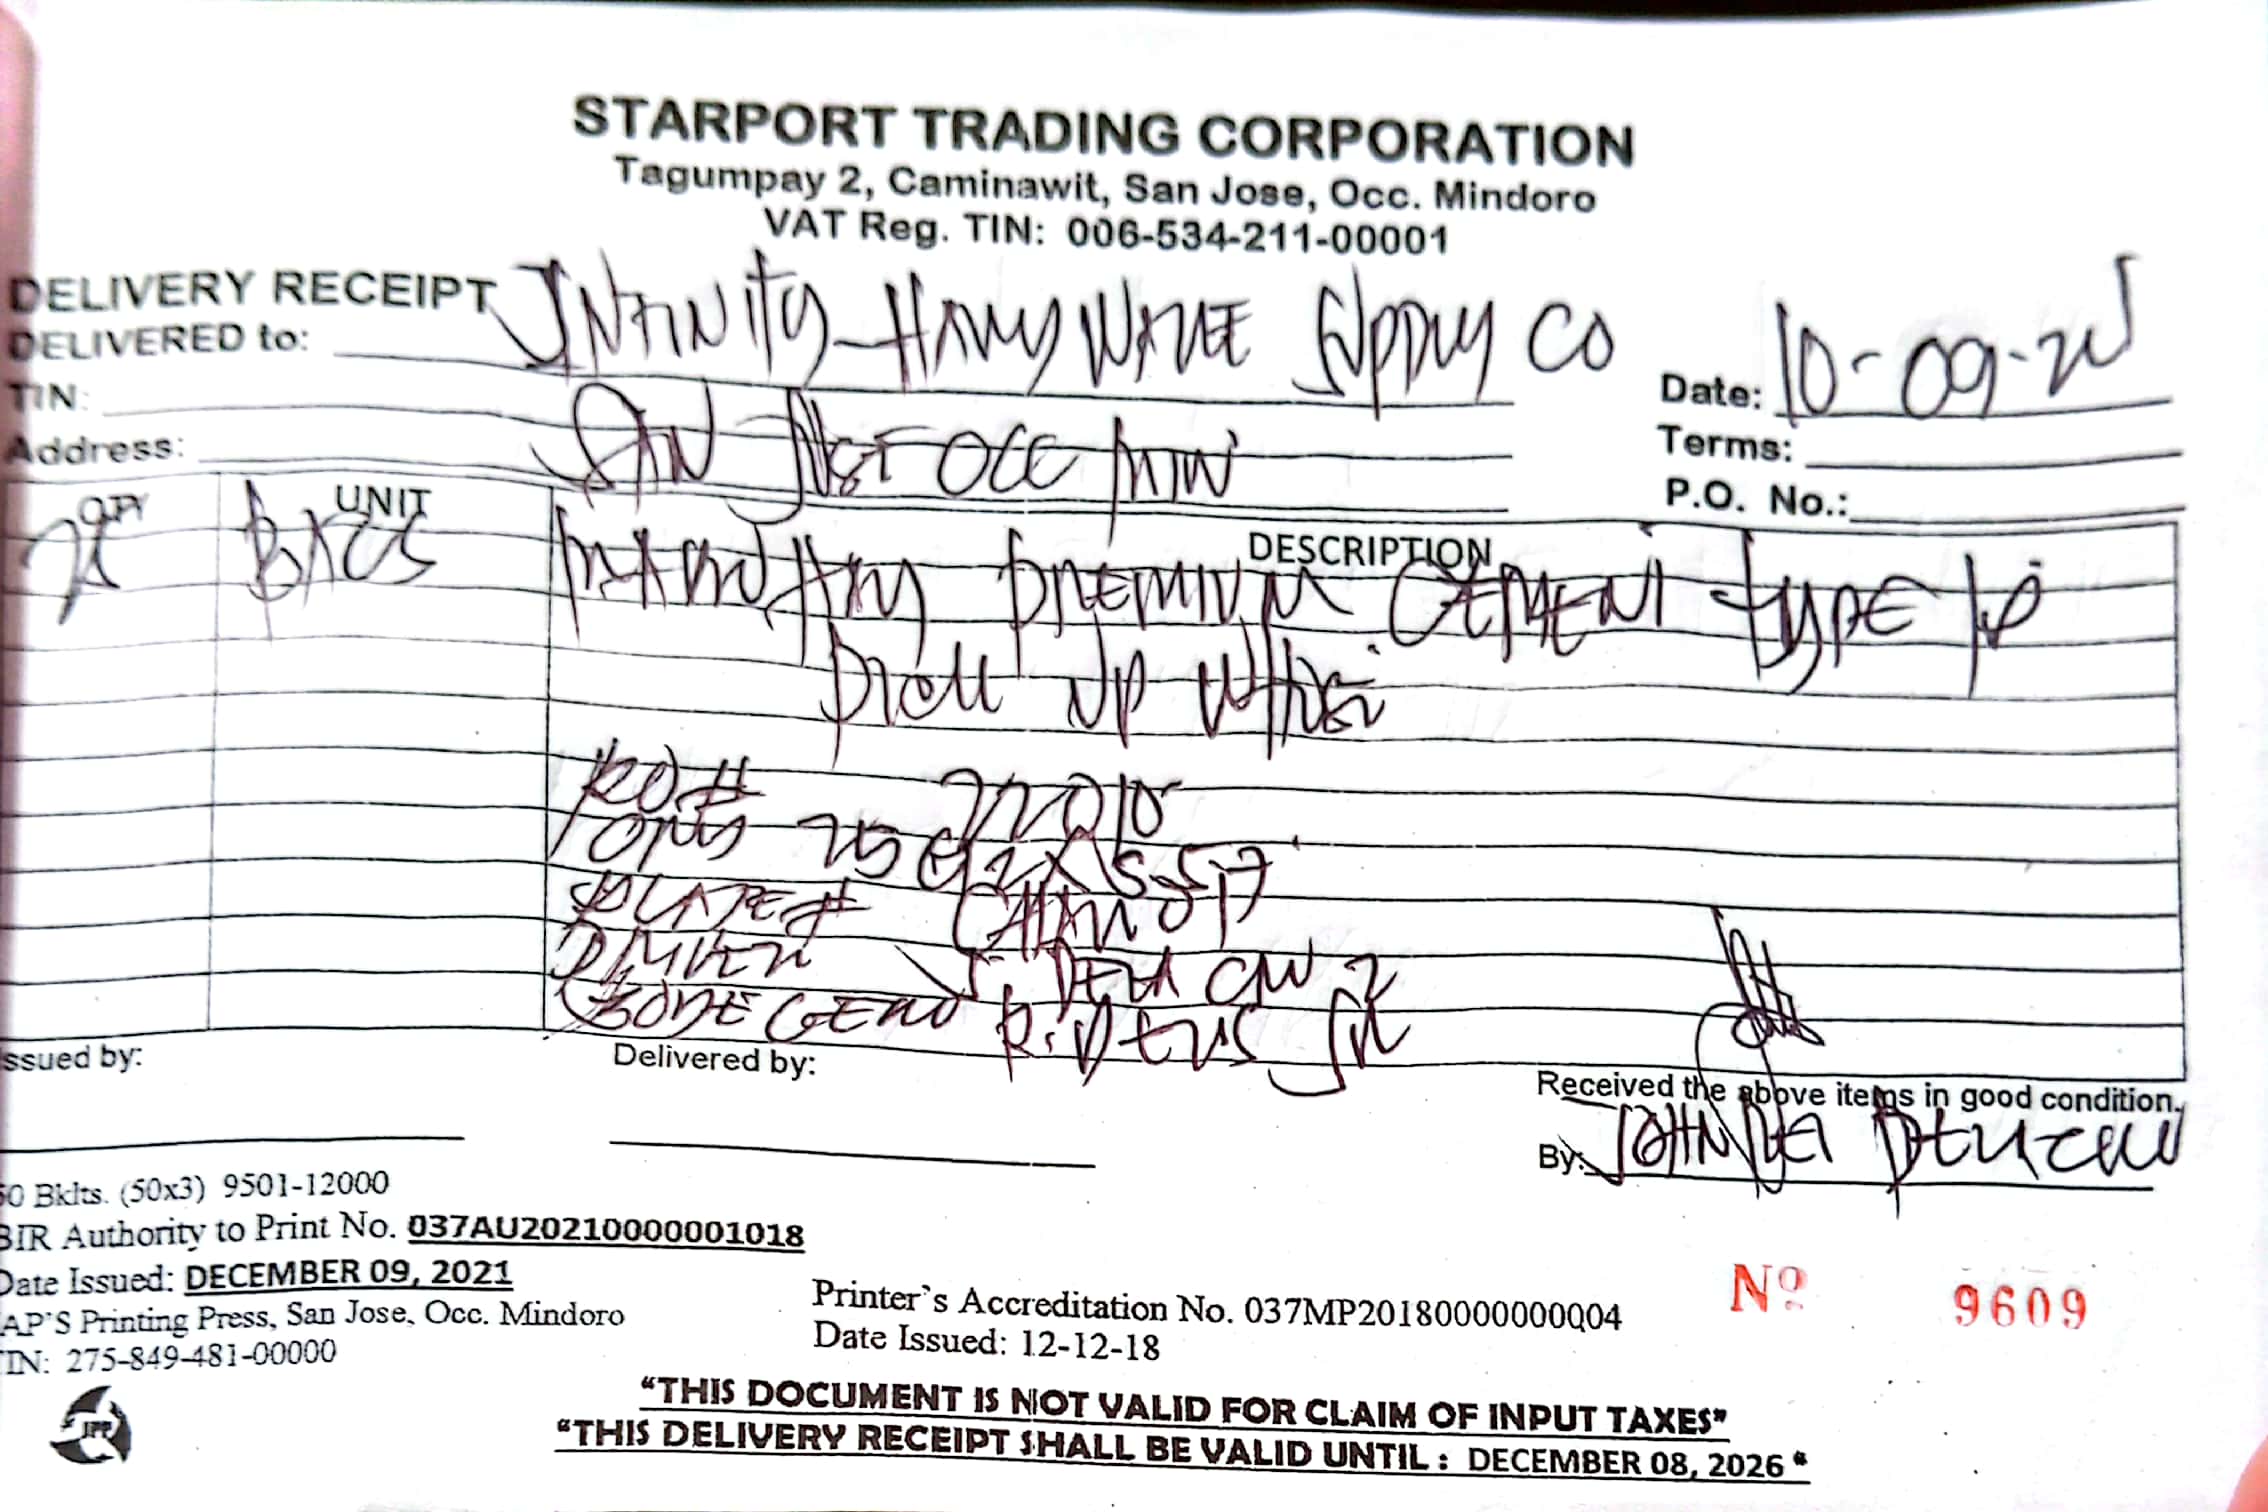 STARPORT TRADING CORPORATION
Tagumpay 2, Caminawit, San Jose, Occ. Mindoro
VAT Reg. TIN: 006-534-211-00001
DELIVERY RECEIPT
DELIVERED to: INFINITY HARDWARE SUPPLY CO
TIN:
Address: SAN JOSE OCC MIN
Date: 10-09-25
Terms:
P.O. No.:
QTY UNIT DESCRIPTION
25 BAGS PREMIUM CEMENT TYPE 1P
PICK UP
#
ONLY 25
PLATE #
DRIVER J. DELA CRUZ
BODEGERO JR
Issued by:
Delivered by:
Received the above items in good condition.
By:
50 Bklts. (50x3) 9501-12000
BIR Authority to Print No. 037AU20210000001018
Date Issued: DECEMBER 09, 2021
AP'S Printing Press, San Jose, Occ. Mindoro
TIN: 275-849-481-00000
Printer's Accreditation No. 037MP20180000000004
Date Issued: 12-12-18
Nº 9609
"THIS DOCUMENT IS NOT VALID FOR CLAIM OF INPUT TAXES"
"THIS DELIVERY RECEIPT SHALL BE VALID UNTIL : DECEMBER 08, 2026 "